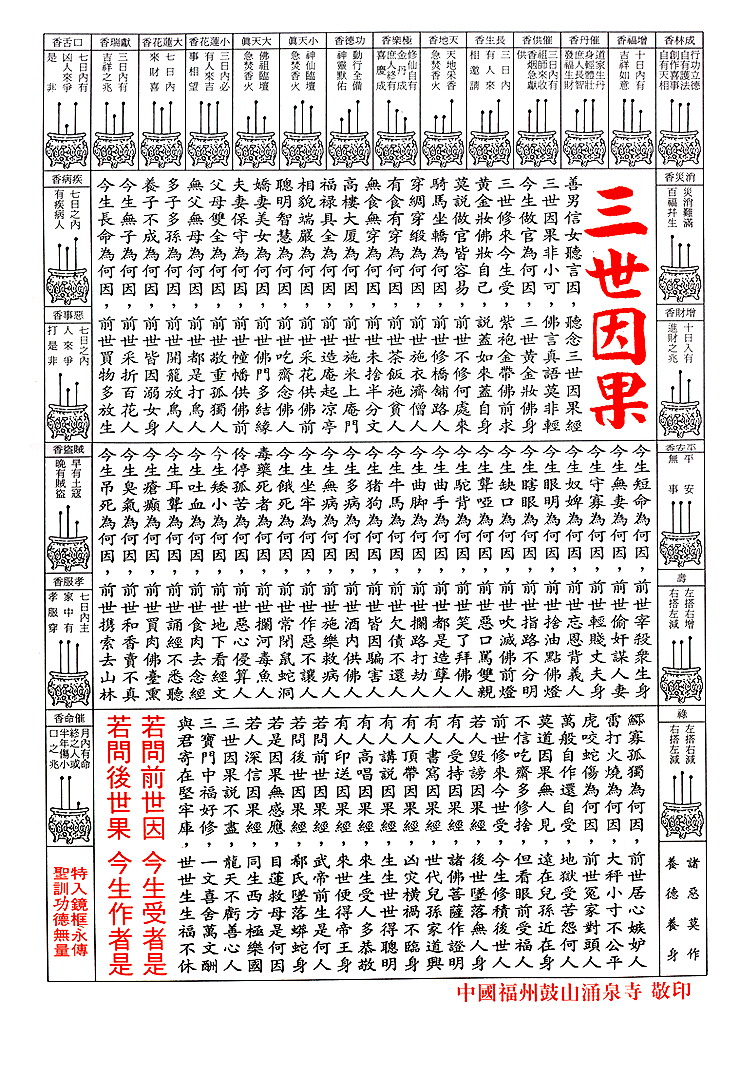 成林香
行功立德
自有護法
自有天相
增福香
十日內有事
吉祥如意
催丹香
道家生丹
身輕體壯
庶人長智
發福生財
催供香
三日內有
祖師來收
香烟急獻
供
長生香
三日內
有人來
相邀請
天地香
天地采香
急焚香火
極樂香
修仙自有
金丹成
庶人終有
喜慶成
功德香
動行全備
神靈默佑
小天真
神仙臨壇
急焚香火
大天真
佛祖臨壇
急焚香火
小蓮花香
三日內必
有人來吉
事相望
大蓮花香
七日內
來財喜
獻瑞香
三日內有
吉祥之兆
口舌香
七日內有
凶人來爭
是非
消災香
災消難滿
百福幷生
增財香
十日入有
進財之兆
平安香
平安
無事
壽
左搭右增
右搭左減
祿
左搭右減
右搭左減
諸惡莫作
養德養身
三世因果
善男信女聽言因，聽念三世因果經
三世因果非小可，佛言真語莫非輕
今生做官為何因，三世黃金妝佛身
三世修來今生受，紫袍金帶佛前求
黃金妝佛妝自己，說蓋如來蓋自身
莫說做官皆容易，前世不修何處來
騎馬坐轎為何因，前世修橋舖路人
穿綢穿緞為何因，前世施衣濟僧人
有食有穿為何因，前世茶飯施貧人
無食無穿為何因，前世未捨半分文
高樓大厦為何因，前世施米上庵門
福祿具全為何因，前世造庵起凉亭
相貌端嚴為何因，前世采花供佛前
聰明智慧為何因，前世吃齋念佛人
嬌妻美女為何因，前世佛門多結緣
夫妻保守為何因，前世幢幡供佛前
父母雙全為何因，前世敬重孤獨人
無父無母為何因，前世都是打鳥人
多子多孫為何因，前世開籠放鳥人
養子不成為何因，前世皆因溺女身
今生無子為何因，前世采折百花人
今生長命為何因，前世買物多放生
今生短命為何因，前世宰殺衆生身
今生無妻為何因，前世偷奸謀人妻
今生守寡為何因，前世輕賤丈夫身
今生奴婢為何因，前世忘恩背義人
今生眼明為何因，前世捨油點佛燈
今生瞎眼為何因，前世指路不分明
今生缺口為何因，前世吹滅佛前燈
今生聾啞為何因，前世惡口駡雙親
今生駝背為何因，前世笑了拜佛人
今生曲手為何因，前世都是造孽人
今生曲脚為何因，前世攔路打劫人
今生牛馬為何因，前世欠債不還人
今生猪狗為何因，前世皆因騙害人
今生多病為何因，前世酒肉供佛人
今生無病為何因，前世施樂救病人
今生坐牢為何因，前世作惡不讓人
今生餓死為何因，前世常閉鼠蛇洞
毒藥死者為何因，前世攔河毒魚人
伶仃孤苦為何因，前世惡心侵算人
今生矮小為何因，前世地下看經文
今生吐血為何因，前世食肉去念經
今生耳聾為何因，前世誦經不悉聽
今生瘡癲為何因，前世買肉佛臺熏
今生臭氣為何因，前世和香賣不真
今生吊死為何因，前世携索去山林
鰥寡孤獨為何因，前世居心嫉妒人
雷打火燒為何因，大秤小寸不公平
虎咬蛇傷為何因，前世冤家對頭人
萬般自作還自受，地獄受苦怨何人
莫道因果無人見，遠在兒孫近在身
不信吃齋多修捨，但看眼前受福人
前世修來今世受，今生修積後世人
若人毀謗因果經，後世墜落無人身
有人受持因果經，諸佛菩薩作證明
有人書寫因果經，世代兒孫家道興
有人頂帶因果經，凶灾橫禍不臨身
有人講說因果經，生生世世得聰明
有人高唱因果經，來生受人多恭敬
有人印送因果經，來世便得帝王身
若問前世因果經，武帝前生是何人
若問後世因果經，郗氏墜落蟒蛇身
若是因果無感應，目蓮救母是何因
若人深信因果經，同生西方極樂國
三世因果說不盡，龍天不虧善心人
三寶門中福好修，一文喜舍萬文酬
與君寄在堅牢庫，世世生生福不休
若問前世因 今生受者是
若問後世果 今生作者是
疾病香
七日之內
有疾病人
惡事香
七日之內
人來爭
打是非
賊盜香
早有土寇
晚有賊盜
孝服香
七日內主
家中有
孝服穿
催命香
月內有命
終之人或
半年傷小
口之兆
特入鏡框永傳
聖訓功德無量
中國福州鼓山涌泉寺 敬印